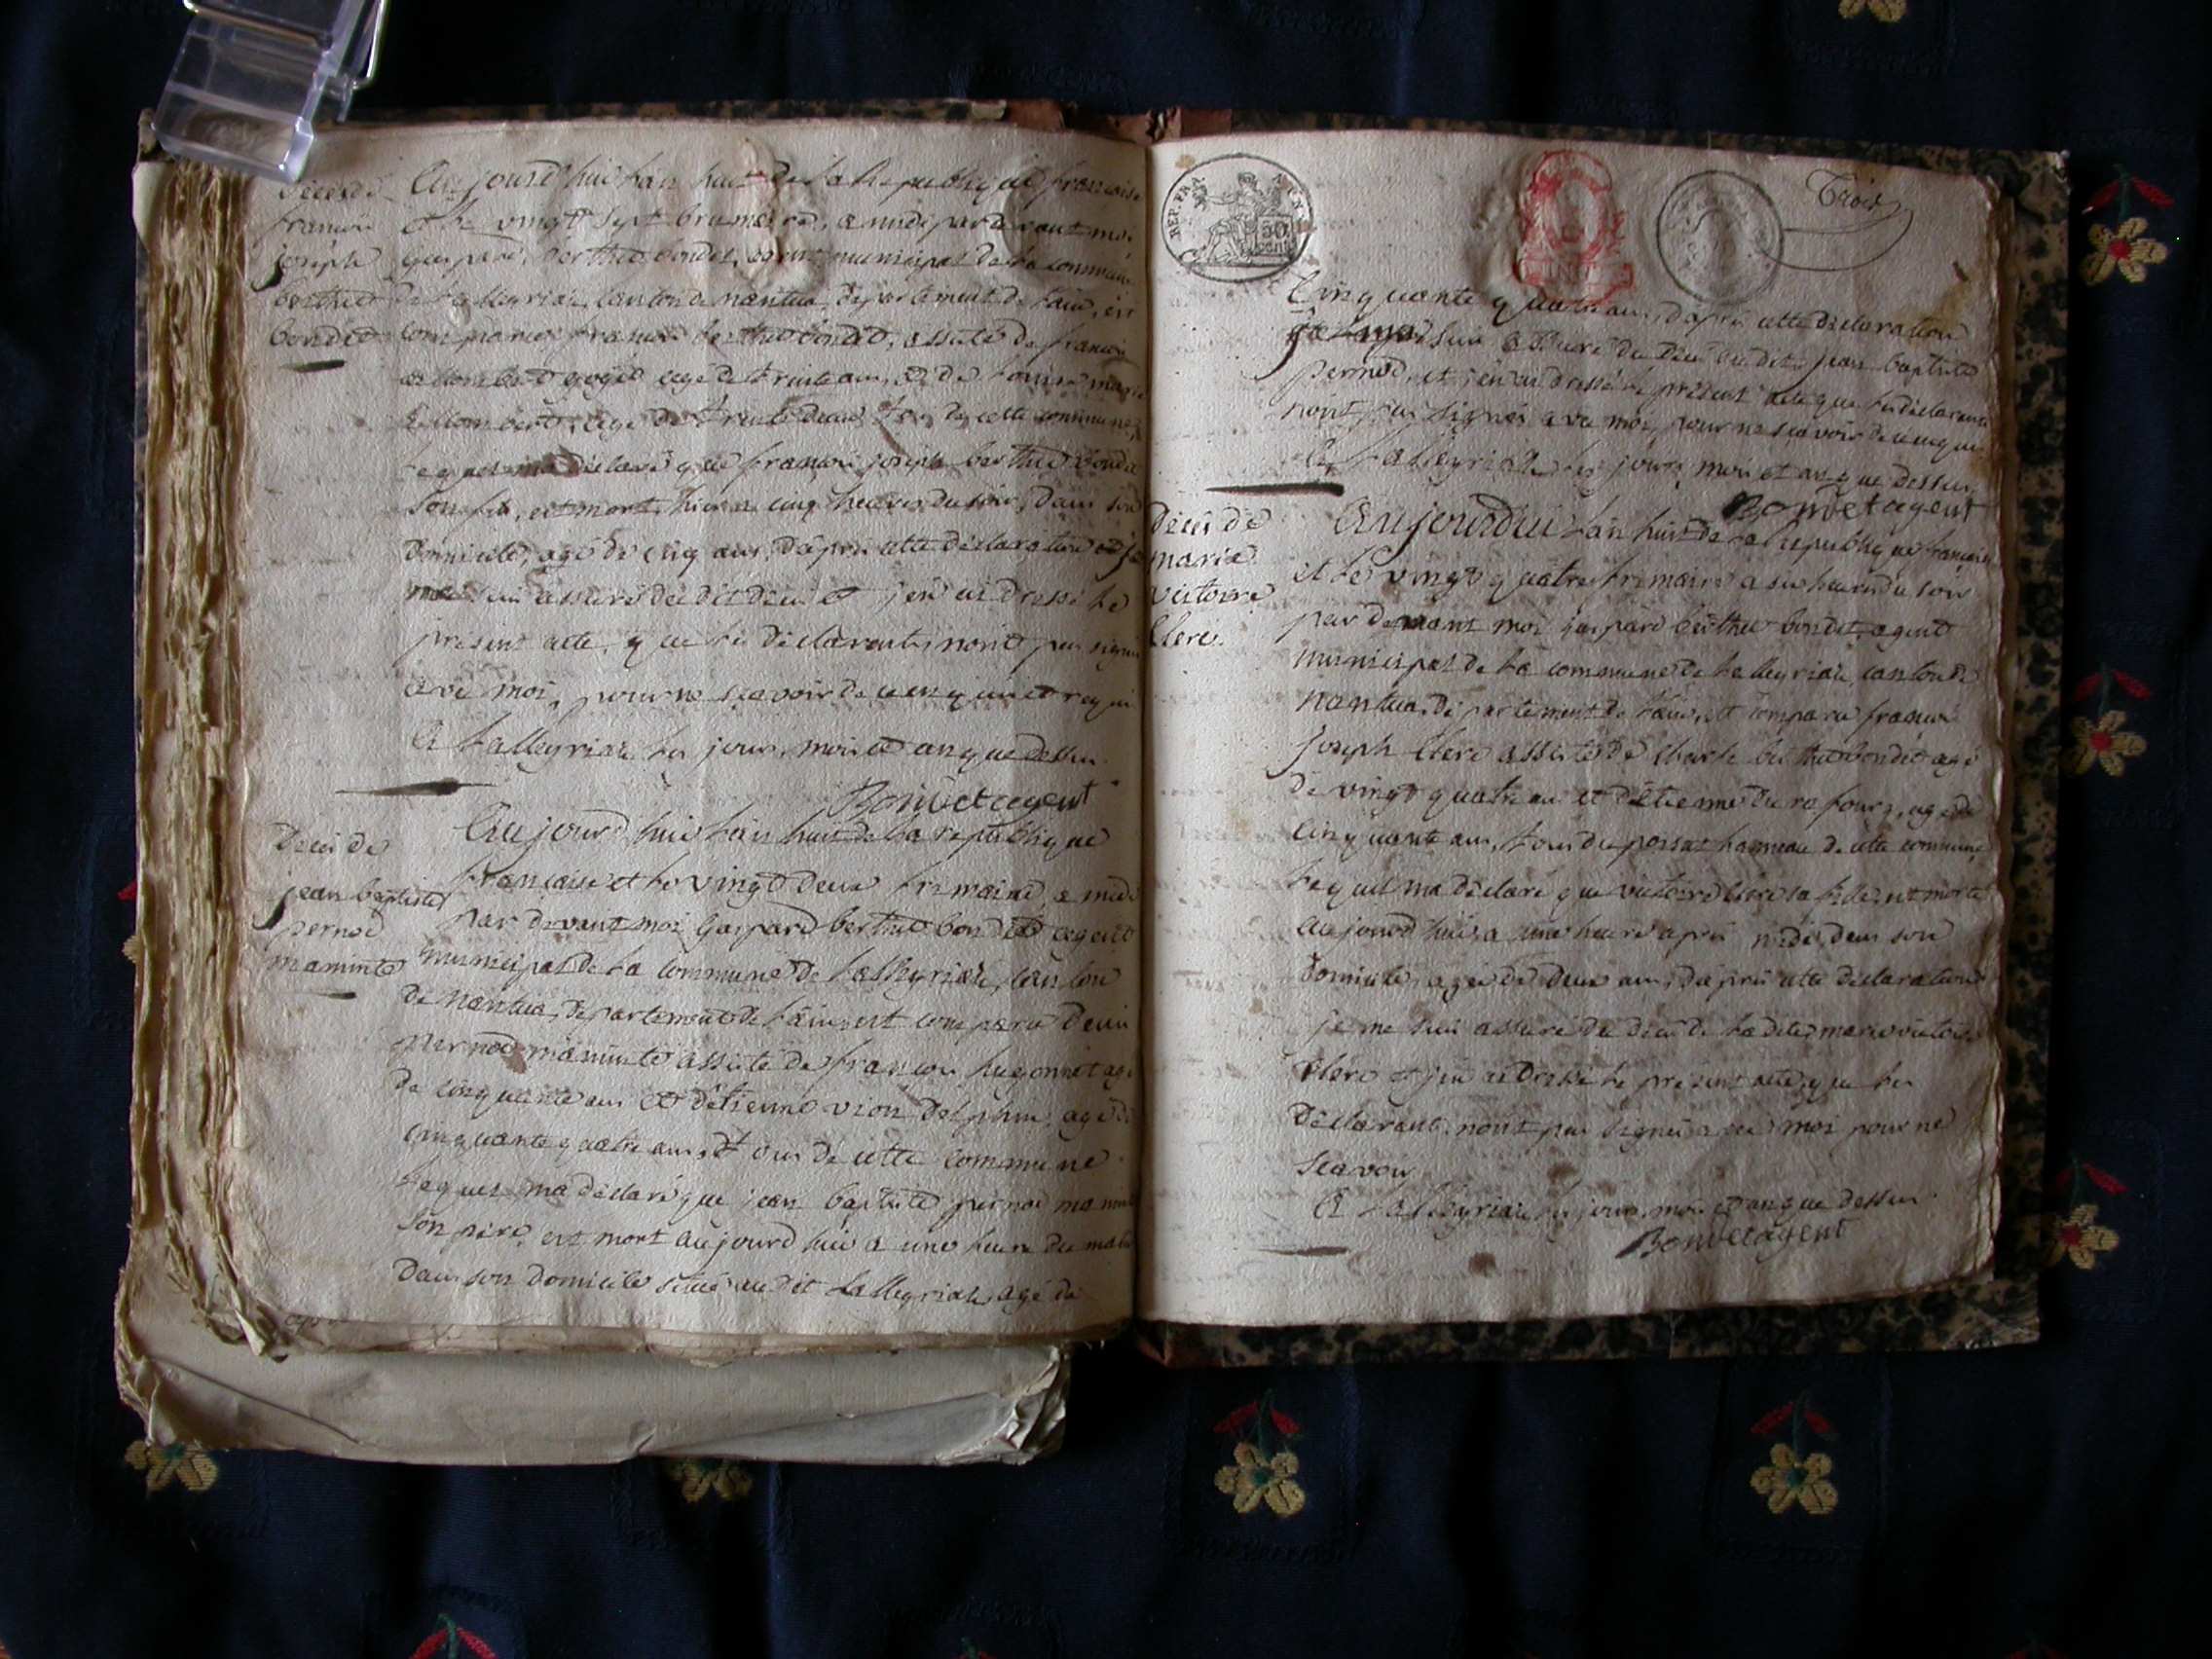 Décès de
francois
joseph
berthet
bondet
Aujourd'hui lan huit de la Republique francoise
et le vingt sept brumaire, a midi par devant moi
gaspard berthet bondet, agent municipal de la commune
de Lalleyriat, canton de nantua, departement de lain, est
comparu francois berthet bondet, assisté de francois
allombert goget agé de trente ans, et de
allombert, agé de trente deux de cette commune
lequel ma déclaré que francois joseph berthet bondet
son fils, est mort hier a cinq heures du soir, dans son
domicile, agé de cinq ans, dapres cette déclaration je
me suis assuré du dit déces et jen ai dressé le
present acte, que les déclarants nont pas signé
avec moi, pour ne scavoir de ce enquis et requis
A Lalleyriat les jours, mois et an que dessus.
Bondet agent
Deces de
jean baptiste
pernod
maminte
Aujourd'hui lan huit de la republique
francoise et le vingt deux frimaire, a midi
par devant moi Gaspard berthet bondet agent
municipal de la commune de Lalleyriat, canton
de Nantua, departement de lain, est comparu denis
pernod maminte assisté de francois hugonnet agé
de cinquante ans et détienne vion delphin, agé de
cinquante quatre ans, tous de cette commune
lequel ma déclaré que jean baptiste pernod maminte
son père, est mort aujourd'hui a une heure du matin
dans son domicile situé au dit Lalleyriat, agé de
REP. FRA.
50
cent
Trois
Cinquante quatre ans, dapres cette déclaration
je me suis assuré du déces du dit jean baptiste
pernod, et jen ai dressé le présent acte que les déclarants
nont pas signés avec moi, pour ne scavoir de ce enquis
A Lalleyriat les jours, mois et an que dessus.
Bondet agent
Déces de
marie
victoire
Clerc.
Aujourdui lan huit de la Republique francaise
et le vingt quatre frimaire a six heures du soir
par devant moi gaspard berthet bondet, agent
municipal de la commune de Lalleyriat, canton de
nantua, département de lain, est comparu francois
joseph Clerc assisté de Charle berthet bondet agé
de vingt quatre ans et détienne durafour, agé de
cinquante ans, tous du poisat hameau de cette commune
lequel ma déclaré que victoire Clerc sa fille, est morte
aujourd'hui, a une heure apres midi, dans son
domicile, agée de deux ans, dapres cette declaration
je me suis assuré du déces de la dite marie victoire
Clerc et jen ai dressé le présent acte, que les
déclarants nont pas signés avec moi pour ne
scavoir
A Lalleyriat les jours, mois et an que dessus.
Bondet agent